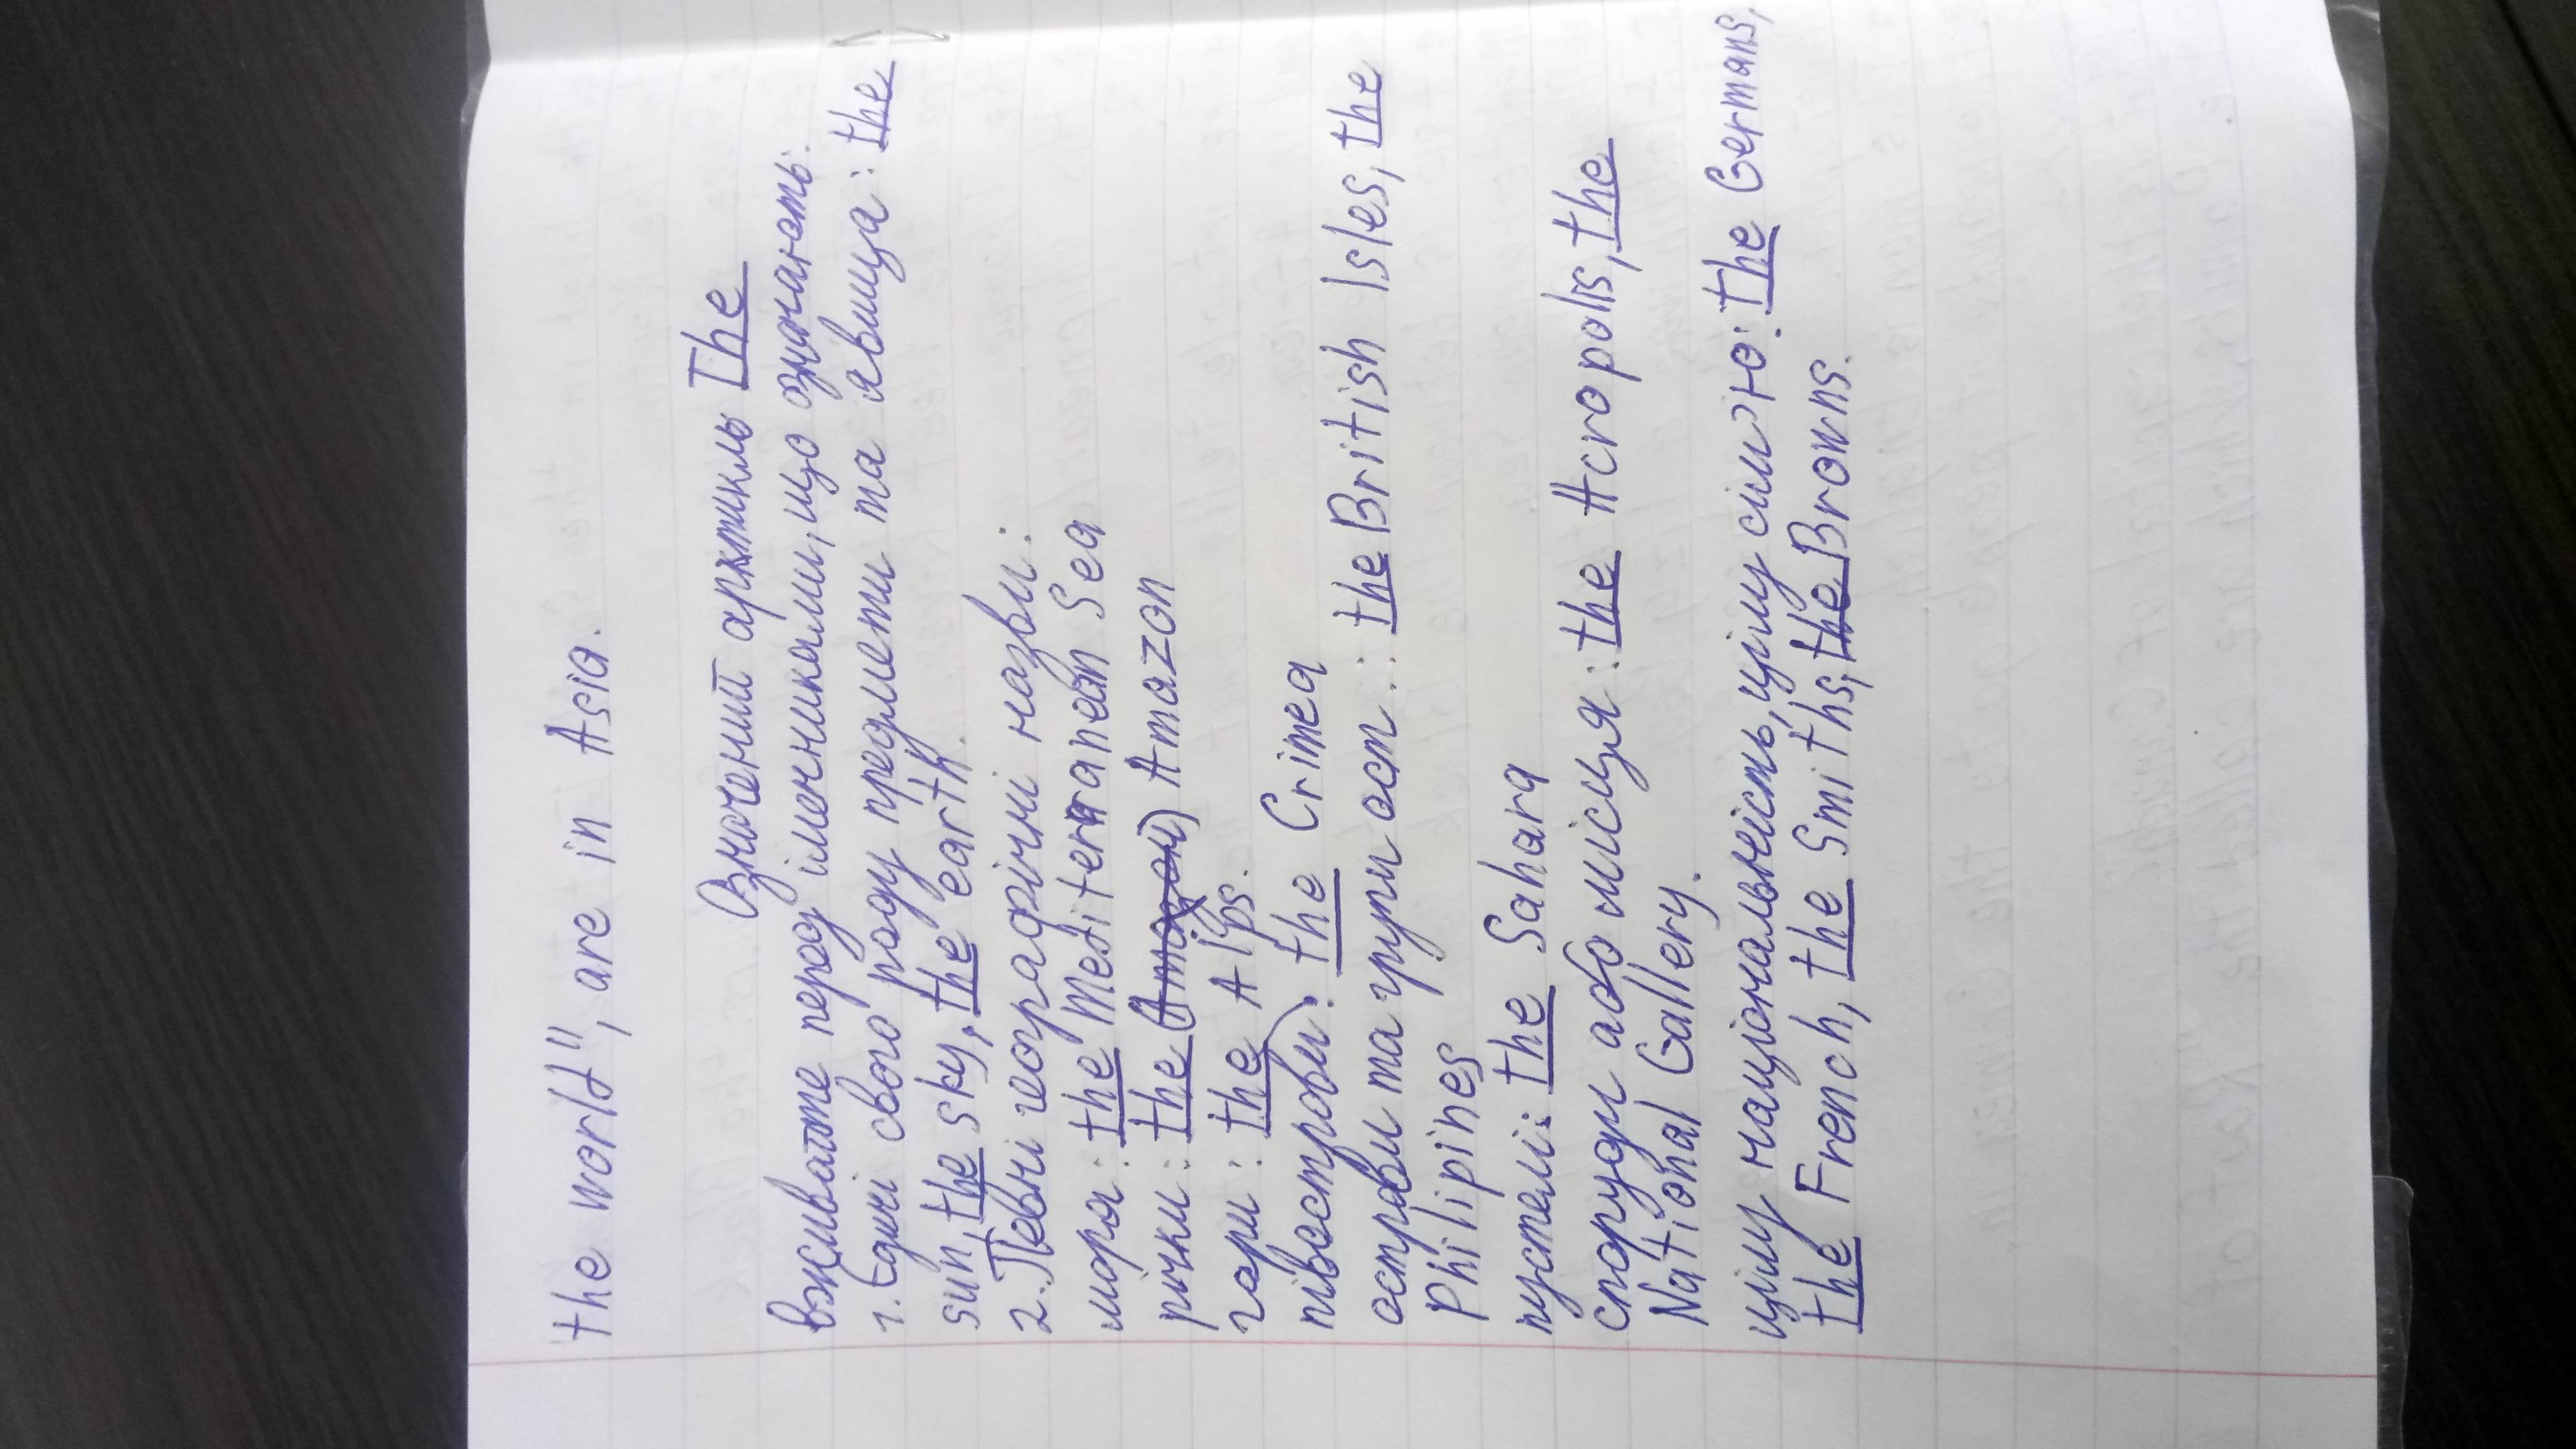 the world", are in Asia.
Означений артикль The
вживайте перед іменниками, що означають:
1. Єдині свого роду предмети та явища: the
sun, the sky, the earth.
2. Певні географічні назви:
моря: the Mediterranean Sea
річки: the Amazon
гори: the Alps.
півострови: the Crimea
острови та групи ост.: the British Isles, the
Philipines
пустелі: the Sahara
споруди або місця: the Acropolis, the
National Gallery.
цілу національність, цілу сім'ю: the Germans,
the French, the Smiths, the Browns.